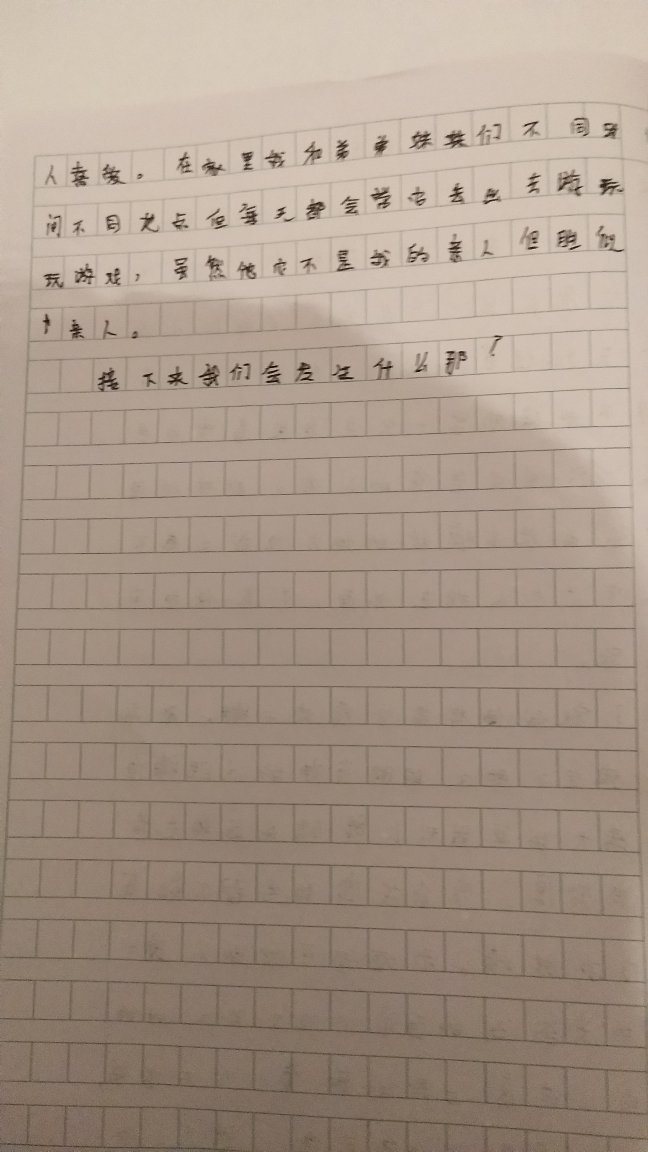 人喜欢。在家里我和弟弟妹妹们不同时
间不同地点但每天都会
去出去游玩
玩游戏，虽然他们不是我的亲人但胜似
亲人。
接下来我们会发生什么那？